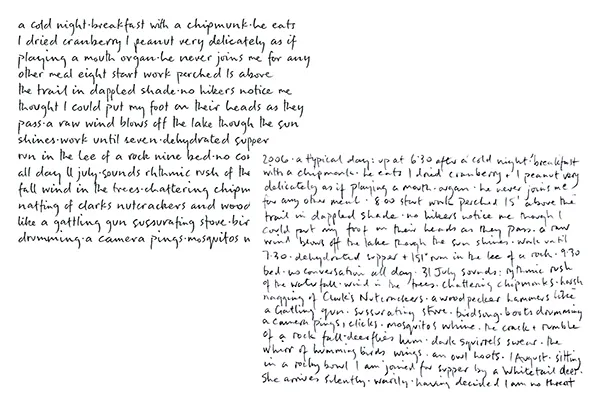 a cold night·breakfast with a chipmunk·he eats
1 dried cranberry 1 peanut very delicately as if
playing a mouth organ·he never joins me for any
other meal eight start work perched 15 above
the trail in dappled shade·no hikers notice me
thought I could put my foot on their heads as they
pass·a raw wind blows off the lake though the sun
shines·work until seven·dehydrated supper
run in the lee of a rock nine bed·no co
all day 11 july·sounds rhthmic rush of the
fall wind in the trees·chattering chipm
natting of clarks nutcrackers and wood
like a gattling gun sussurating stove·bir
drumming·a camera pings·mosquitos
2006·a typical day: up at 6·30 after a cold night·breakfast
with a chipmunk·he eats 1 dried cranberry, 1 peanut very
delicately as if playing a mouth·organ·he never joins me
for any other meal·8 00 start work perched 15' above the
trail in dappled shade·no hikers notice me though I
could put my foot on their heads as they pass·a raw
wind blows off the lake though the sun shines·work until
7·30·dehydrated supper + run in the lee of a rock·9·30
bed·no conversation all day·31 July sounds: rythmic rush
of the waterfall·wind in the trees·chattering chipmunks·harsh
nagging of Clark's Nutcrackers·a woodpecker hammers like
a Gatling gun·sussurating stove·birdsong·boots drumming
a camera pings, clicks·mosquitos whine·the crack + rumble
of a rock fall·deerflies hum·dark squirrels swear·the
whirr of humming birds wings·an owl hoots·1 August·sitting
in a rocky bowl I am joined for supper by a Whitetail deer.
She arrives silently·warily·having decided I am no threat